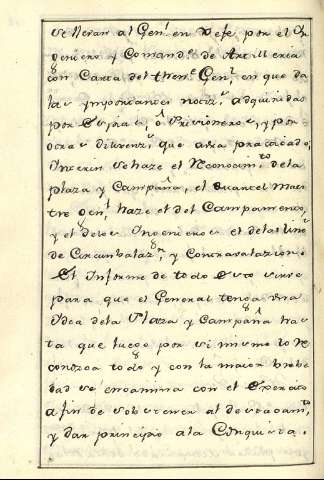 se llevan al Gen.l en Xefe por el In
geniero y Comand.te de Artilleria
con Carta del then.te Gen.l en que da
las ymportantes notici.s adquiridas
por Espias, ô Prisioneros, y por
otras diligenz.s que avra practicado;
Interin se haze el Reconocim.to de la
plaza y Campaña, el Quartel Maes
tre Gen.l haze el del Campamento,
y el de los Ingenieros el de las line.s
de Circunbalaz.on y Contravalazion.
El Informe de todo Esto sirve
para que el General tenga una
Idea de la Plaza y Campaña has
ta que luego por si mismo lo Re
conozca todo y con la maior breve
dad se encamina con el Exercito
a fin de sobstener al destacam.to
y dar principio a la Conquista.